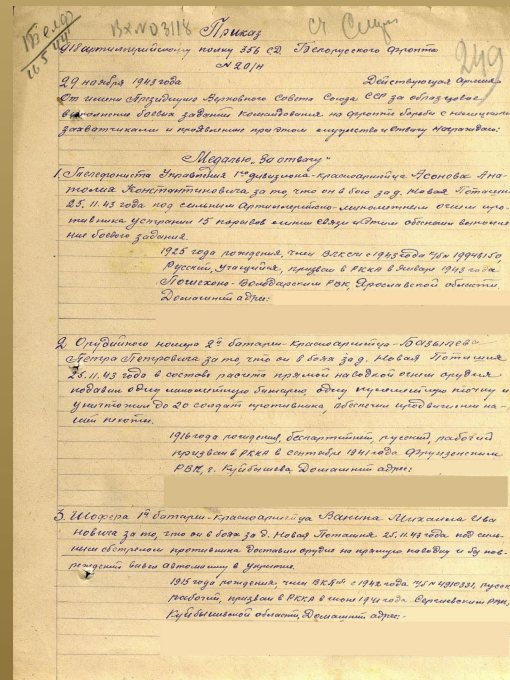 Вх №03118
249
Приказ
918 артиллерийскому полку 356 СД Белорусского фронта
№ 20/н
29 ноября 1943 года Действующая Армия
От имени Президиума Верховного Совета Союза ССР за образцовое
выполнение боевых заданий командования на фронте борьбы с немецкими
захватчиками и проявленные при этом мужество и отвагу награждаю:
Медалью „За отвагу"
1. Телефониста Управления 1го дивизиона - Красноармейца Асонова Ана-
толия Константиновича за то, что он в бою за д. Новая Поташня
25.11.43 года под сильным артиллерийско-минометным огнем про-
тивника устранил 15 порывов линии связи и этим обеспечил выполне-
ние боевого задания.
1925 года рождения, член ВЛКСМ с 1943 года
Русский, учащийся, призван в РККА в Январе 1943 года
Пошехоно-Володарским РВК Ярославской области.
Домашний адрес:
2. Орудийного номера 2й батареи - Красноармейца - Базылева
Петра Петровича за то что он в боях за д. Новая Поташня
25.11.43 года в составе расчета прямой наводкой огнем орудия
подавил одну минометную батарею, одну пулеметную точку и
уничтожил до 20 солдат противника, обеспечив продвижение на-
шей пехоты.
1916 года рождения, беспартийный, русский, рабочий
призван в РККА в сентябре 1941 года Фрунзенским
РВК, г. Куйбышева Домашний адрес:
3. Шофера 1й батареи - Красноармейца Ванина Михаила Ива
новича за то, что он в боях за д. Новая Поташня 25.11.43 года под силь-
ным обстрелом противника доставил орудие на прямую наводку и
вывел автомашину в укрытие.
1915 года рождения, член ВКП(б) с 1942 года русский
рабочий, призван в РККА в июне 1941 года Сергиевским РВК,
Куйбышевской области, Домашний адрес:-